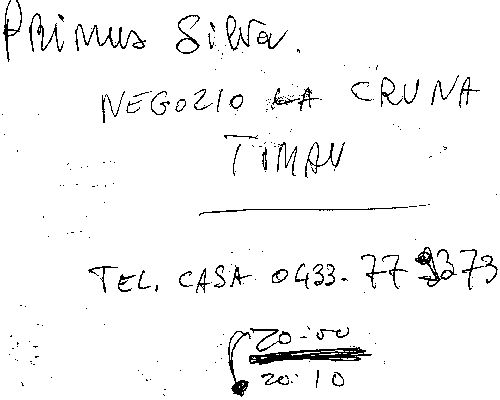 Primus Silva.
NEGOZIO LA CRUNA
TIMAU
TEL. CASA 0433. 77 9373
20.00
20.10